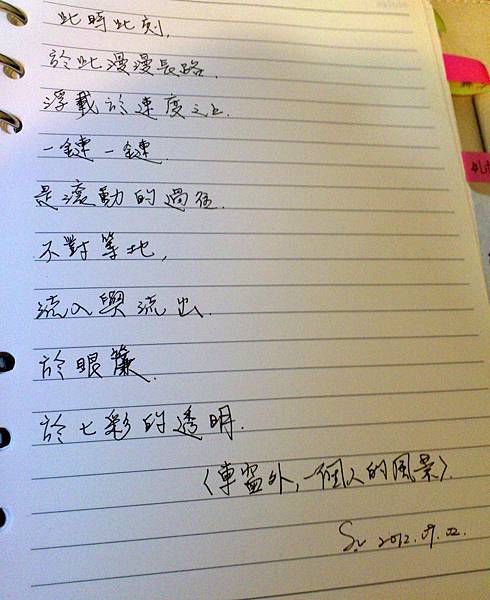 此時此刻,
於此漫漫長路.
浮載於速度之上.
一鏈一鏈.
是滾動的過往.
不對等地,
流入與流出.
於眼簾.
於七彩的透明.
〈車窗外,一個人的風景〉.
2012.09.02.